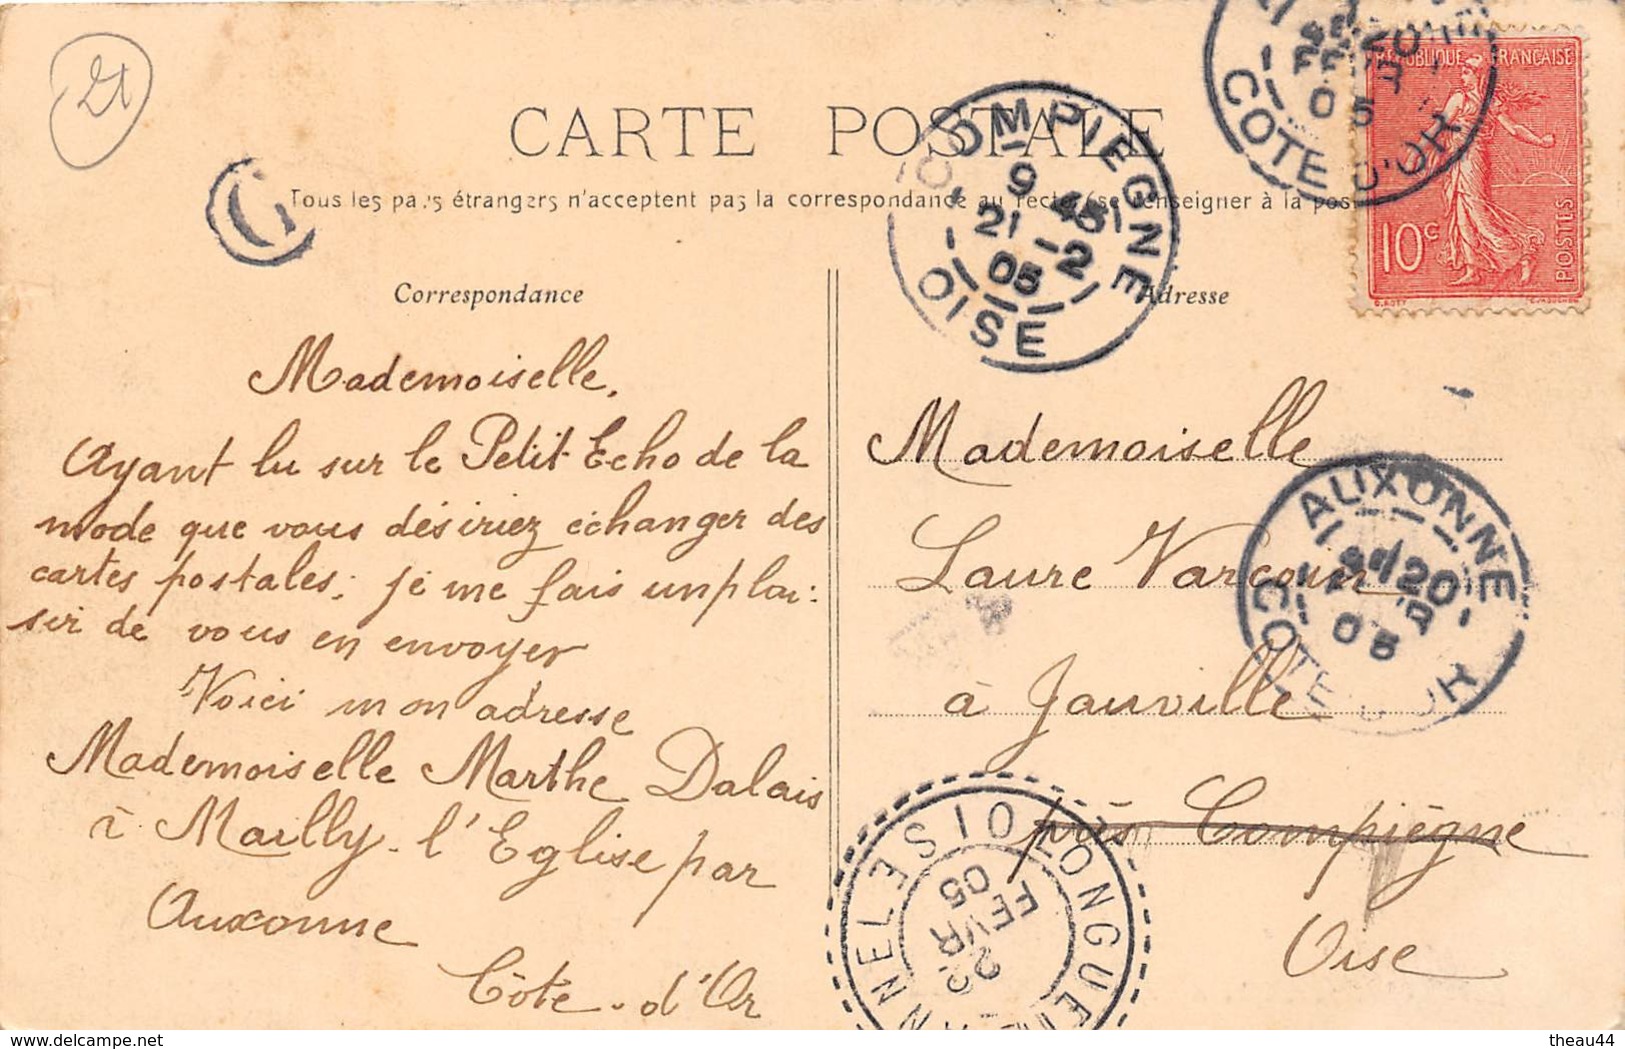 21
CARTE POSTALE
Tous les pays étrangers n'acceptent pas la correspondance au recto (se renseigner à la pos
Correspondance
Mademoiselle,
Ayant lu sur le Petit Echo de la
mode que vous désiriez échanger des
cartes postales; je me fais un plai:
sir de vous en envoyer
Voici mon adresse
Mademoiselle Marthe Dalais
à Mailly-l'Eglise par
Auxonne
Côte-d'Or
COMPIEGNE
9 45
21 -2
05
OISE
Adresse
Mademoiselle
Laure Varcoin
à Janville
près Compiègne
Oise
REPUBLIQUE FRANÇAISE
10c
POSTES
O.ROTY
05
COTE D'OR
AUXONNE
20
05
COTE D'OR
OISE
22
FEVR
05
www.delcampe.net
theau44